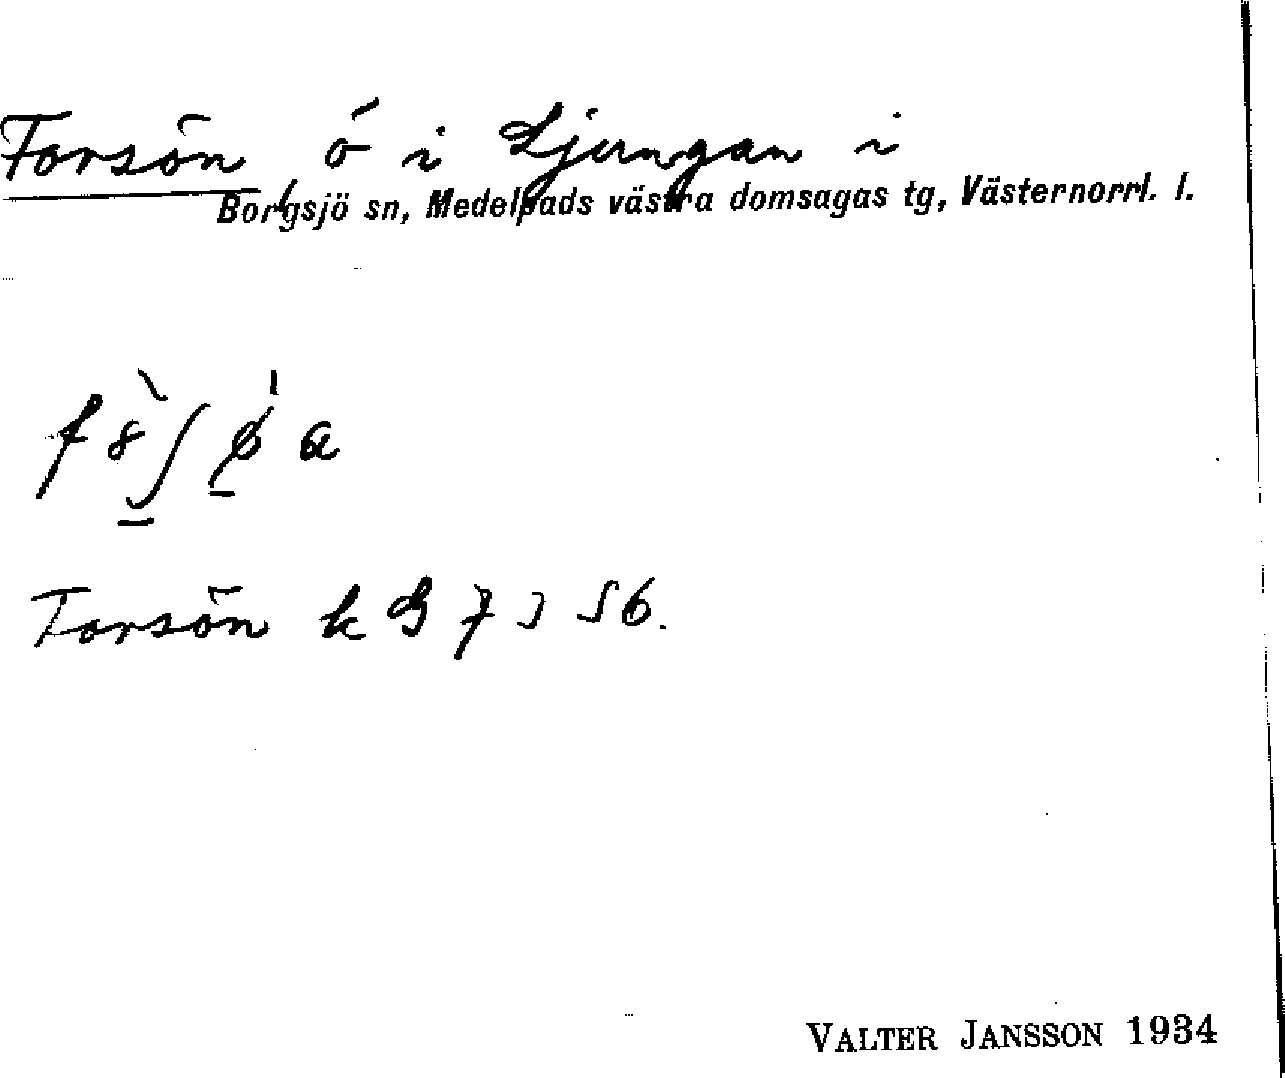 Forsön ö i Ljungan i
Borgsjö sn, Medelpads västra domsagas tg, Västernorrl. l.
Forsön k
VALTER JANSSON 1934